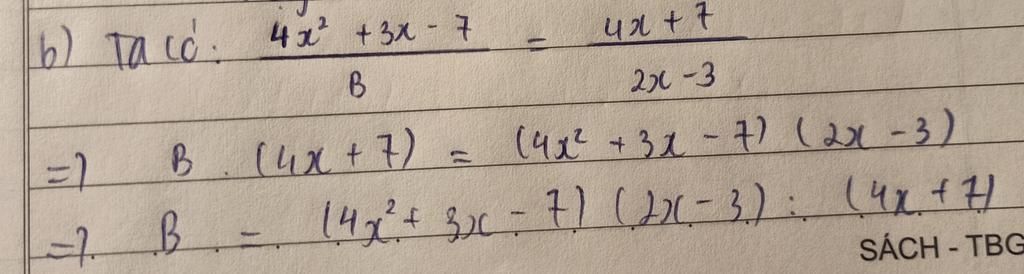 b) Ta có: (4x² + 3x - 7)/B = (4x + 7)/(2x - 3)
=> B . (4x + 7) = (4x² + 3x - 7) (2x - 3)
=> B = (4x² + 3x - 7) (2x - 3) : (4x + 7)
SÁCH - TBG